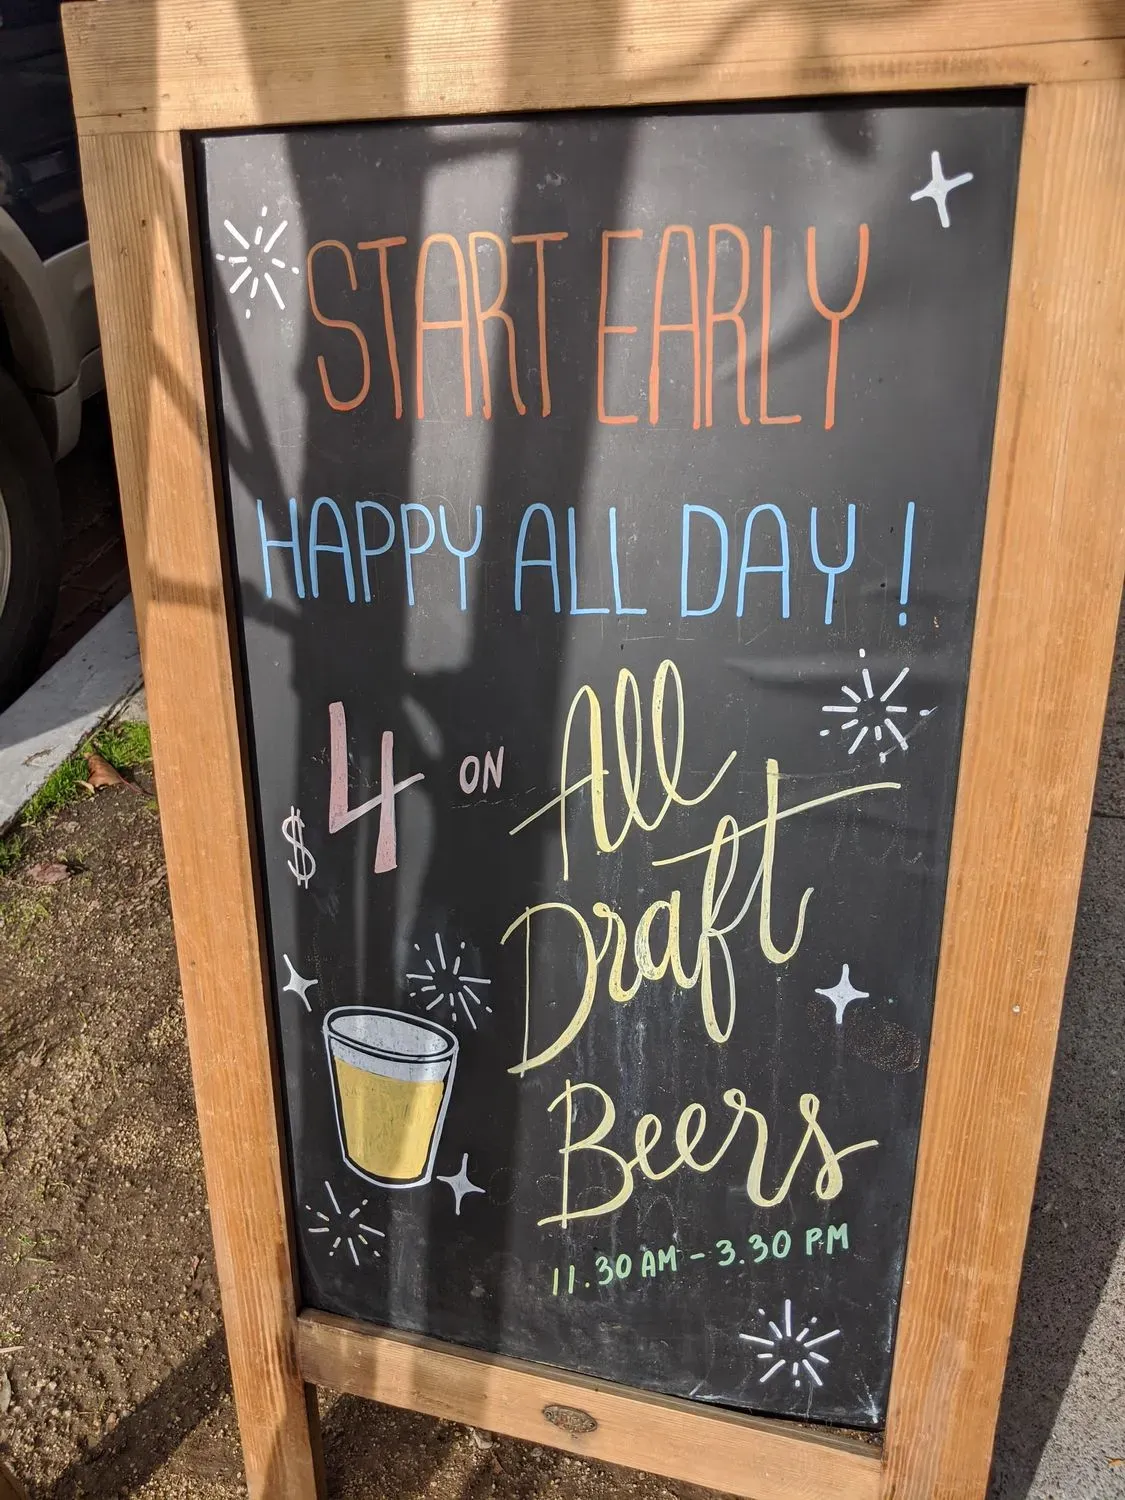 START EARLY
HAPPY ALL DAY!
$4 ON All
Draft
Beers
11.30 AM - 3.30 PM